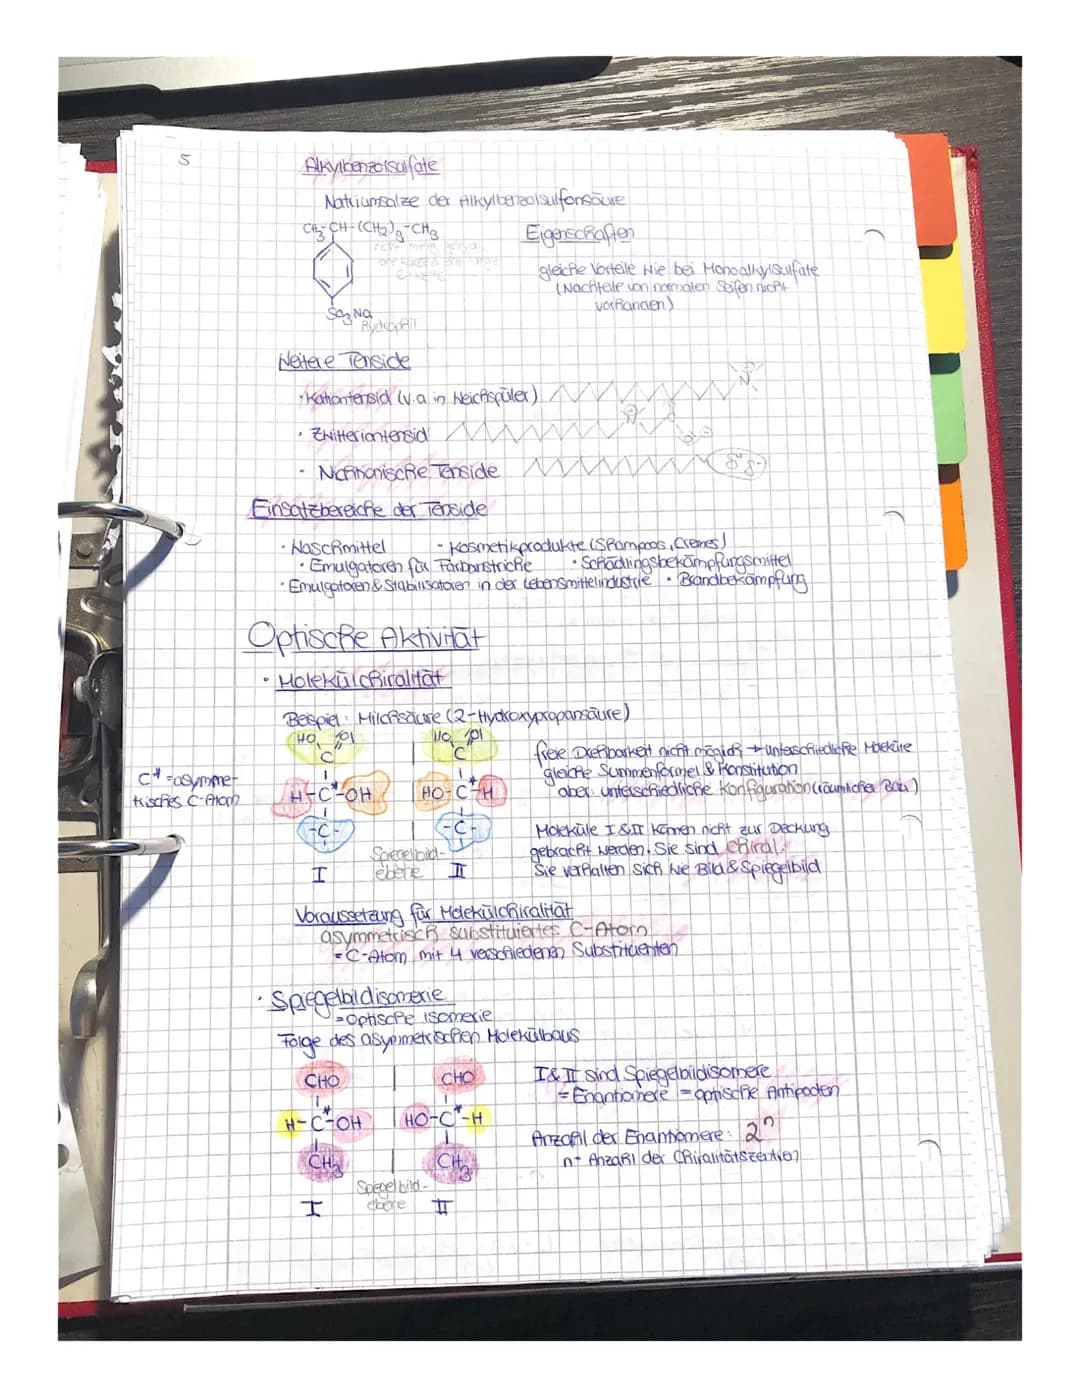 5
Alkylbenzolsulfate
Natriumsalze der Alkylbenzolsulfonsäure
CH3-CH-(CH2)9-CH3
Eigenschaften
gleiche Vorteile wie bei Monoalkylsulfate
(Nachteile von normalen Seifen nicht
vorhanden)
SO3Na
Hydrophil
Weitere Tenside
· Kationtensid (v.a in Weichspüler)
· Zwitteriontensid
· Nichtionische Tenside δ+ δ-
Einsatzbereiche der Tenside
· Waschmittel · Kosmetikprodukte (Shampoos, Cremes)
· Emulgatoren für Farbanstriche · Schädlingsbekämpfungsmittel
· Emulgatoren & Stabilisatoren in der Lebensmittelindustrie · Brandbekämpfung
Optische Aktivität
· Molekülchiralität
Beispiel: Milchsäure (2-Hydroxypropansäure)
HO IOI HO IOI
C C
freie Drehbarkeit nicht möglich → unterschiedliche Moleküle
gleiche Summenformel & Konstitution
aber: unterschiedliche Konfiguration (räumlicher Bau)
C* = asymme-
trisches C-Atom
H-C*-OH HO-C*-H
-C- -C-
Spiegelbild-
ebene
I II
Moleküle I & II können nicht zur Deckung
gebracht werden. Sie sind chiral.
Sie verhalten sich wie Bild & Spiegelbild
Voraussetzung für Molekülchiralität
asymmetrisch substituiertes C-Atom
= C-Atom mit 4 verschiedenen Substituenten
· Spiegelbildisomerie
= Optische Isomerie
Folge des asymmetrischen Molekülbaus
CHO CHO
H-C*-OH HO-C*-H
CH3 CH3
Spiegelbild-
ebene
I II
I & II sind Spiegelbildisomere
= Enantiomere = optische Antipoden
Anzahl der Enantiomere: 2^n
n = Anzahl der Chiralitätszentren